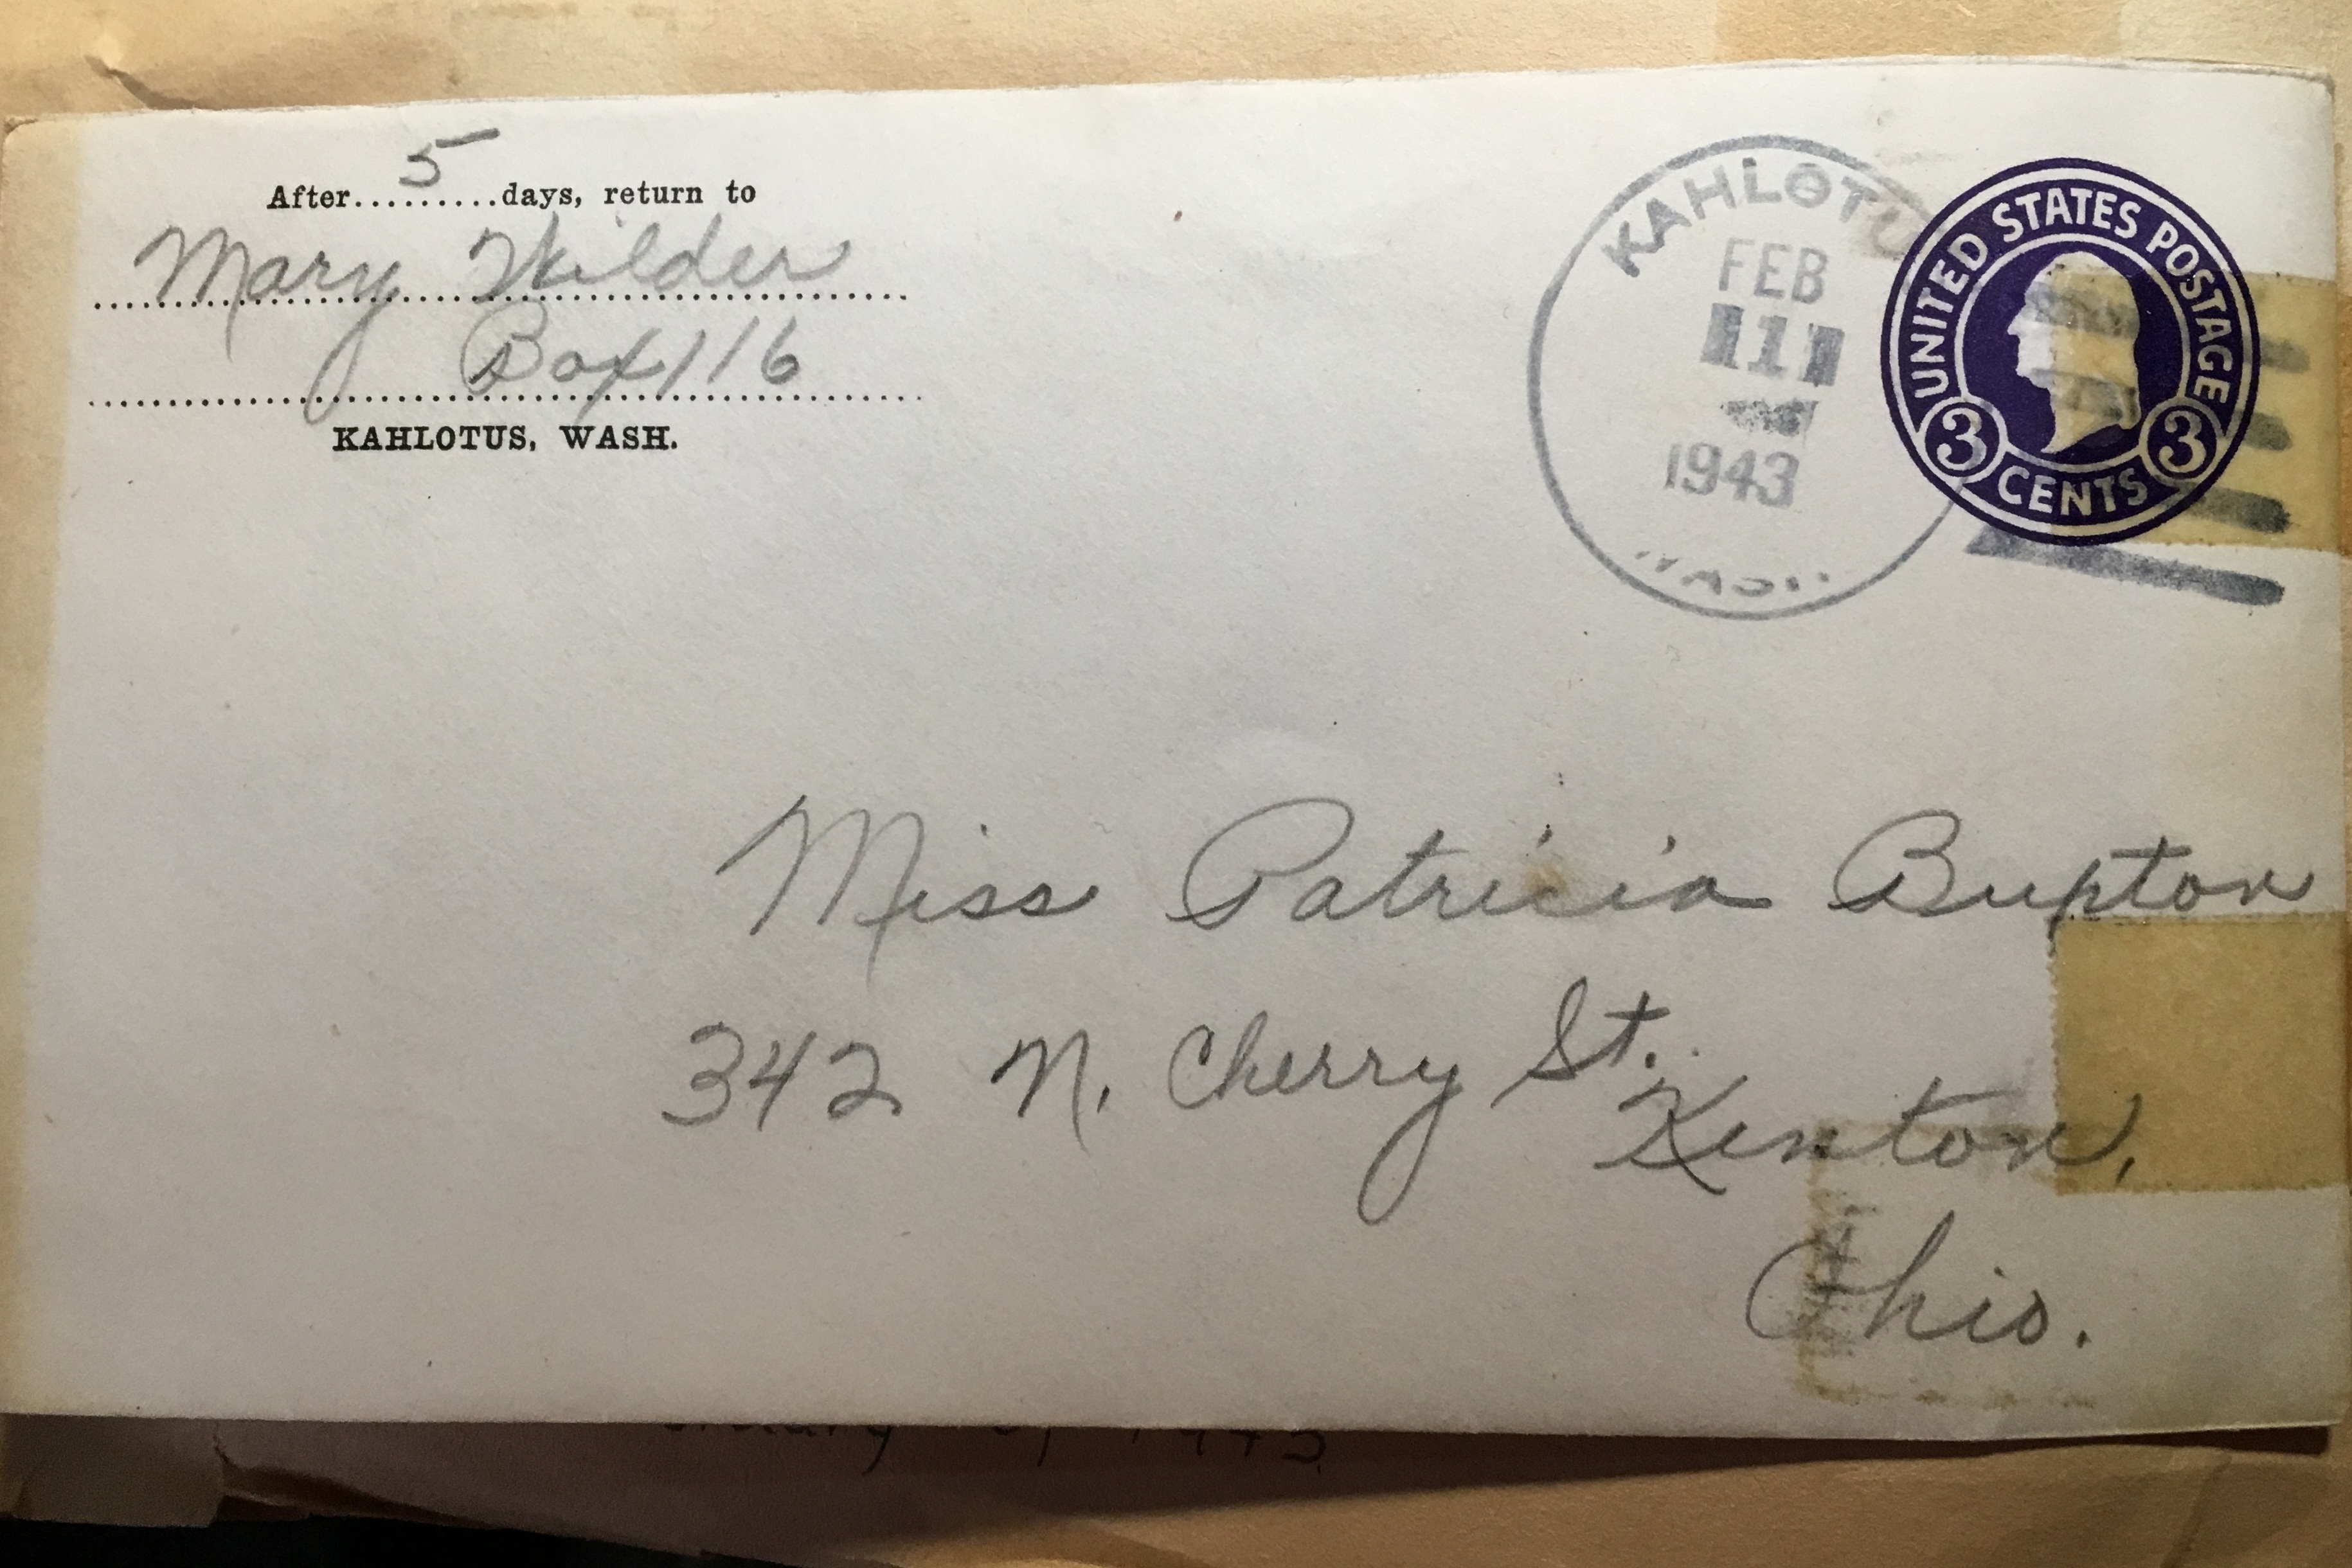 After.........days, return to
5
Mary Wilder
Box 116
KAHLOTUS, WASH.
KAHLOTU
FEB
1
1943
UNITED STATES POSTAGE
3 CENTS 3
Miss Patricia Buxton
342 N. Cherry St.
Kenton,
Ohio.